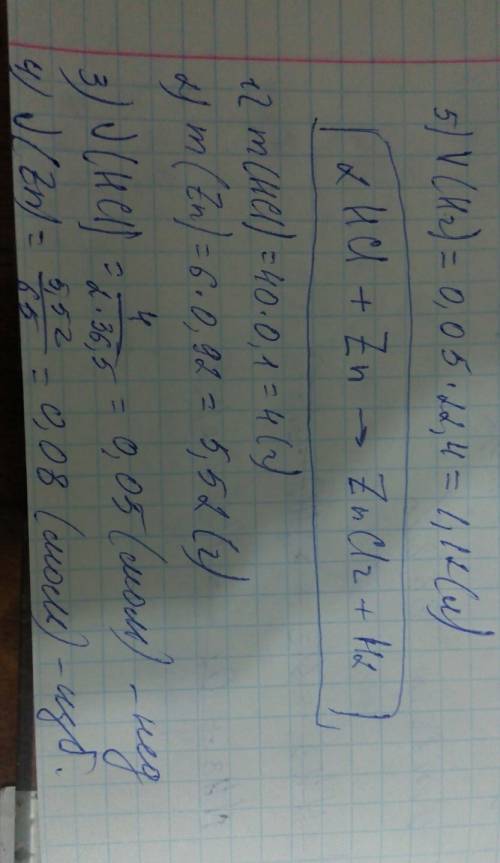 [ 2 HCl + Zn → ZnCl2 + H2 ]
1) m(HCl) = 40·0,1 = 4 (г)
2) m(Zn) = 6·0,92 = 5,52 (г)
3) ν(HCl) = 4 / 2·36,5 = 0,05 (моль) - нед
4) ν(Zn) = 5,52 / 65 = 0,08 (моль) - изб.
5) V(H2) = 0,05·22,4 = 1,12 (л)